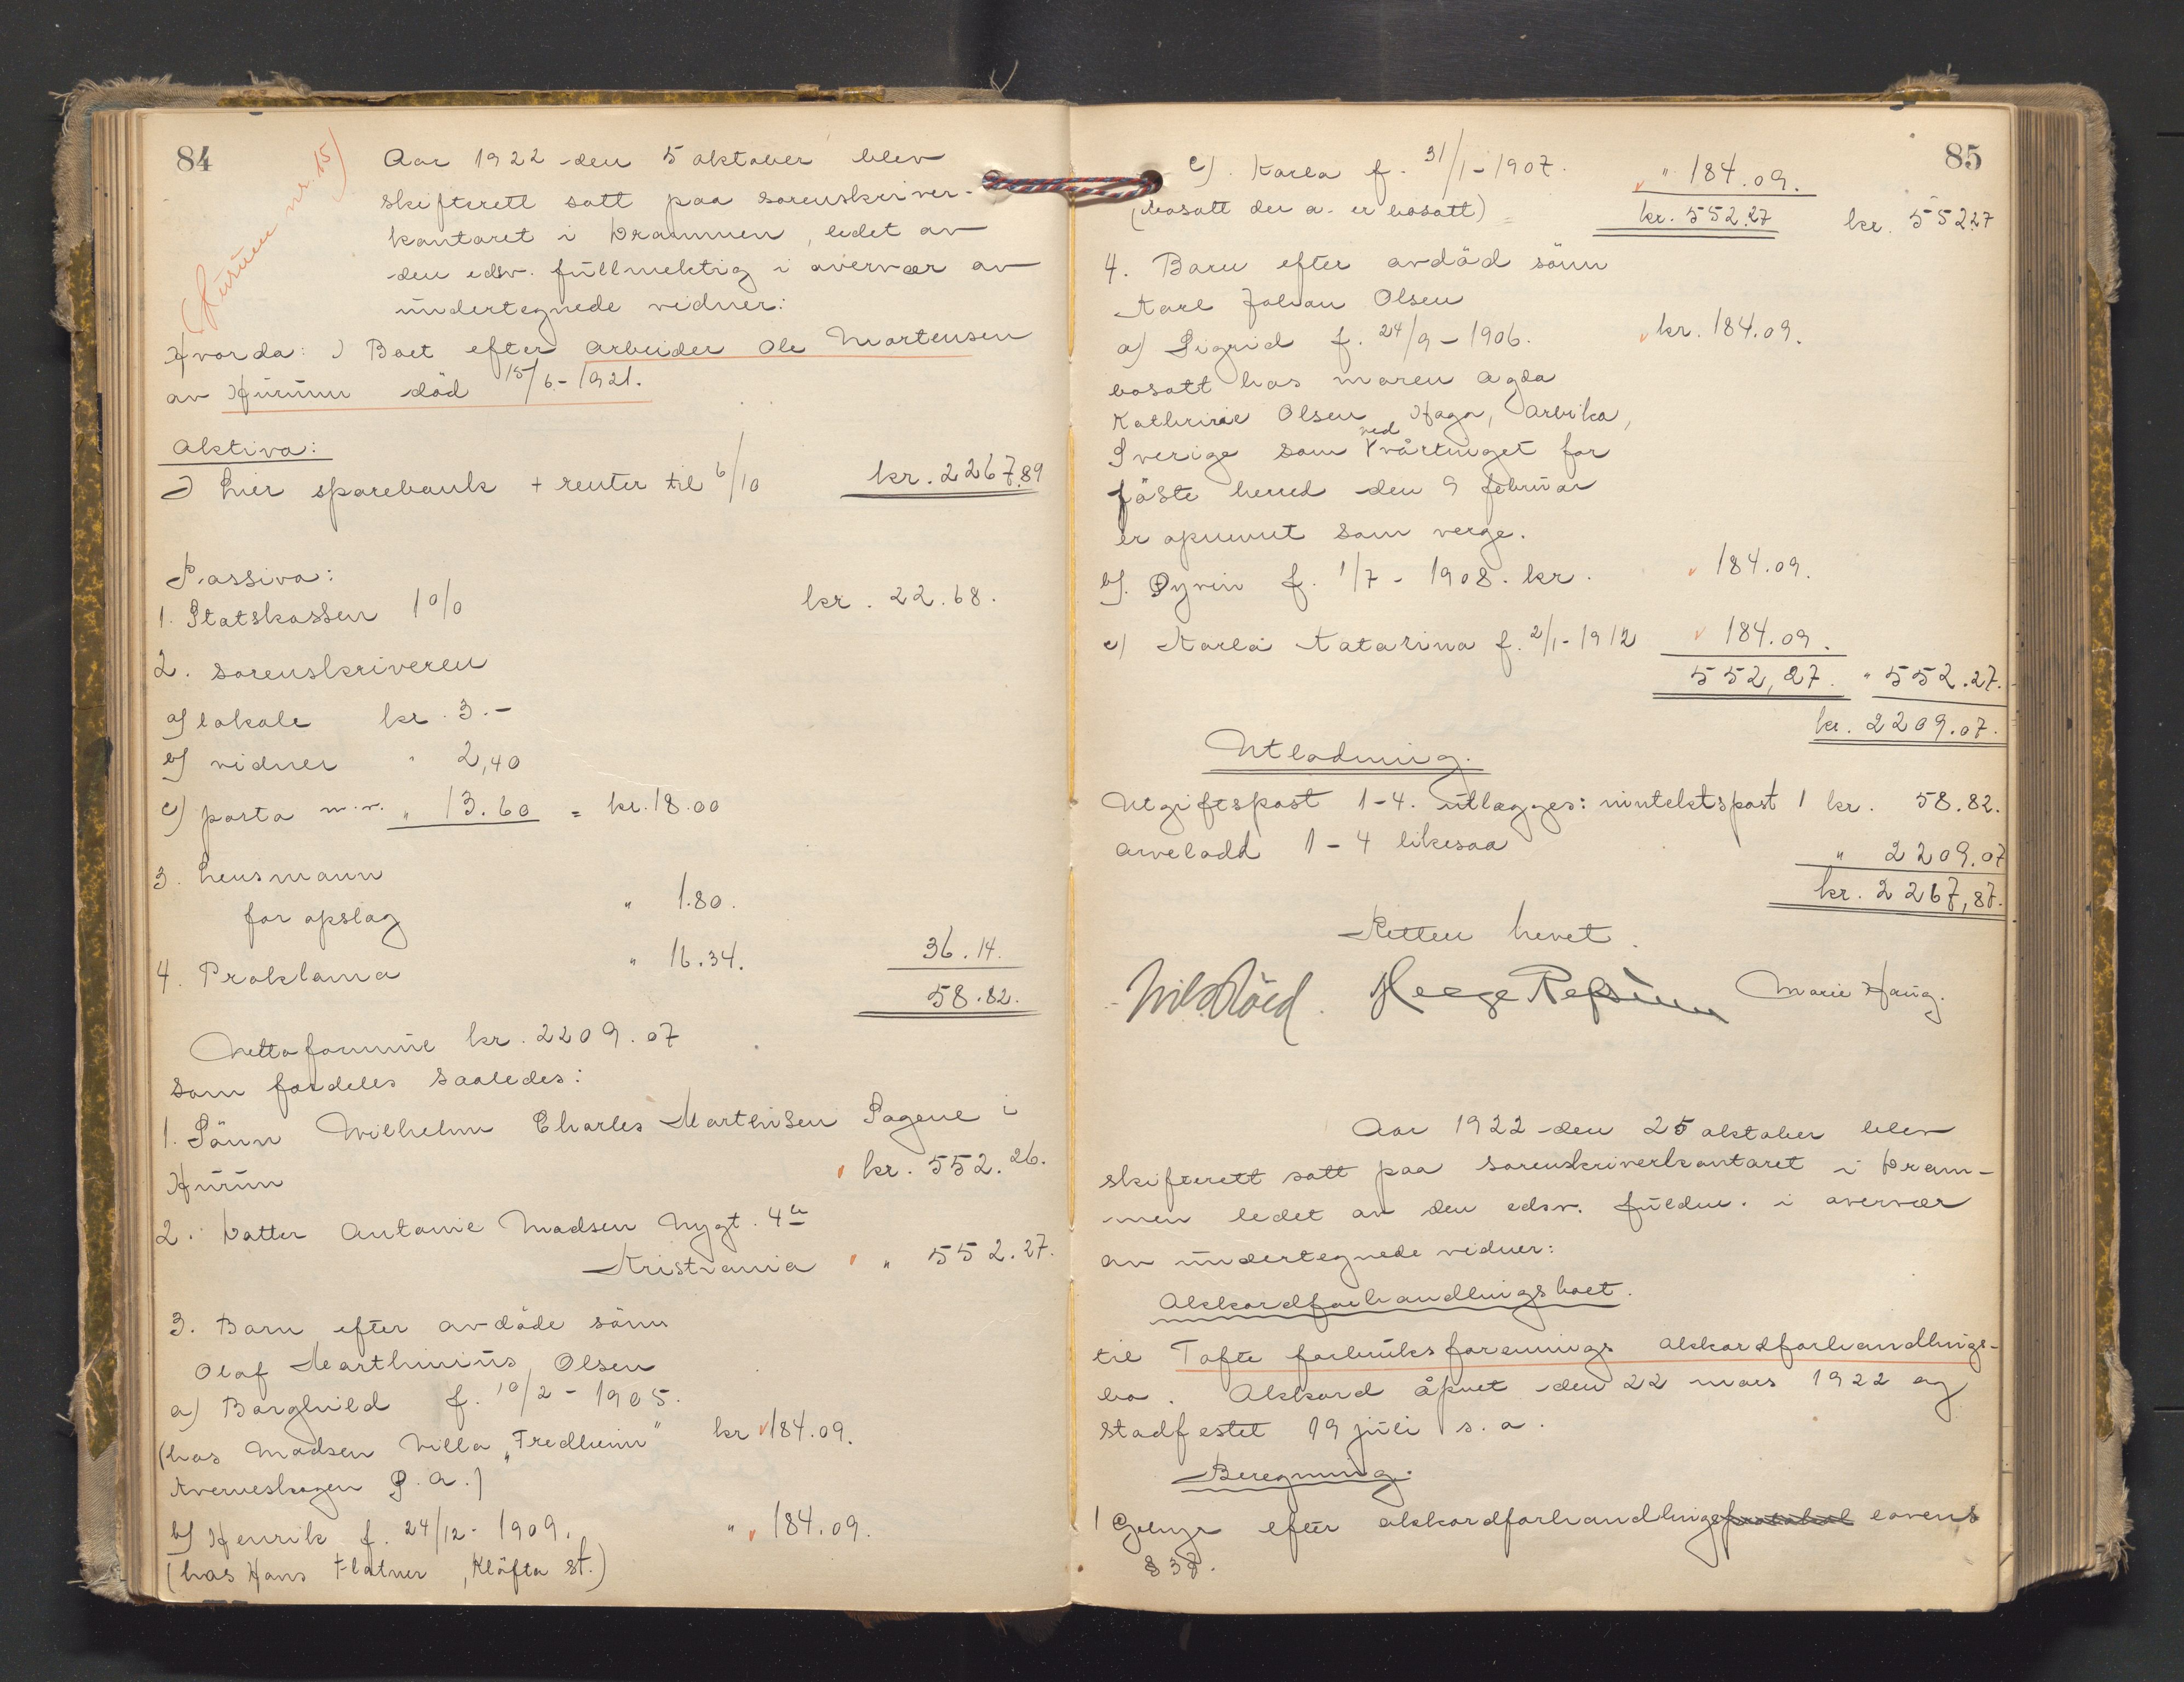 84
(Hurum nr. 15)
Aar 1922 den 5 oktober blev
skifterett satt paa sorenskriver-
kontoret i Drammen, ledet av
den edsv. fullmektig i overvær av
undertegnede vidner:
Hvorda: 1) Boet efter arbeider Ole Mortensen
av Hurum död 15/6-1921.
Aktiva:
1) Lier sparebank + renter til 6/10 kr. 2267.89
Passiva:
1. Statskassen 1 0/0 kr. 22.68.
2. sorenskriveren
a) lokale kr. 3.-
b) vidner " 2,40
c) porto m.v. " 13.60 = kr. 18.00
3. Lensmann
for opslag " 1.80.
4. Proklama " 16.34. 36.14.
58.82.
Nettoformue kr. 2209.07
som fordeles saaledes:
1. Sönn Wilhelm Charles Marthisen Sagene i
Hurum kr. 552.26.
2. Datter Antonie Madsen Nygt. 4
Kristiania " 552.27.
3. Barn efter avdöde sönn
Olaf Marthinius Olsen
a) Borghild f. 10/2 - 1905.
(hos Madsen Villa „Fredheim" kr 184.09.
Kverneskogen P.A.)
b) Henrik f. 24/12 - 1909. " 184.09.
(hos Hans Flatner, Klöfta st.)
85
c). Karla f. 31/1-1907. " 184.09.
(bosatt der a. er bosatt) = kr. 552.27 kr. 552.27
4. Barn efter avdöd sönn
Karl Johan Olsen
a) Sigrid f. 24/9 - 1906. kr. 184.09.
bosatt hos moren Agda
Kathrine Olsen, Haga, Arvika,
Sverige som ved vårtinget for
Jöste herred den 9 februar
er opnevnt som verge.
b). Öyvin f. 1/7 - 1908. kr. 184.09.
c) Karla Katarina f. 2/1-1912 184.09.
552,27. " 552.27.
kr. 2209.07.
Utlodning.
Utgiftspost 1-4. utlægges: inntektspost 1 kr. 58.82.
arvelodd 1-4 likesaa " 2209.07
kr. 2267,87.
Retten hevet.
Helge Refsum Marie Haug.
Aar 1922 den 25 oktober blev
skifterett satt paa sorenskriverkontoret i Dram-
men ledet av den edsv. fuldm. i overvær
av undertegnede vidner:
Akkordforhandlingsboet.
til Tofte forbruksforenings akkordforhandlings-
bo. Akkord åpnet den 22 mars 1922 og
stadfestet 19 juli s.a.
Beregning.
1 Gebyr efter akkordforhandlingsprotokol lovens
§ 37.